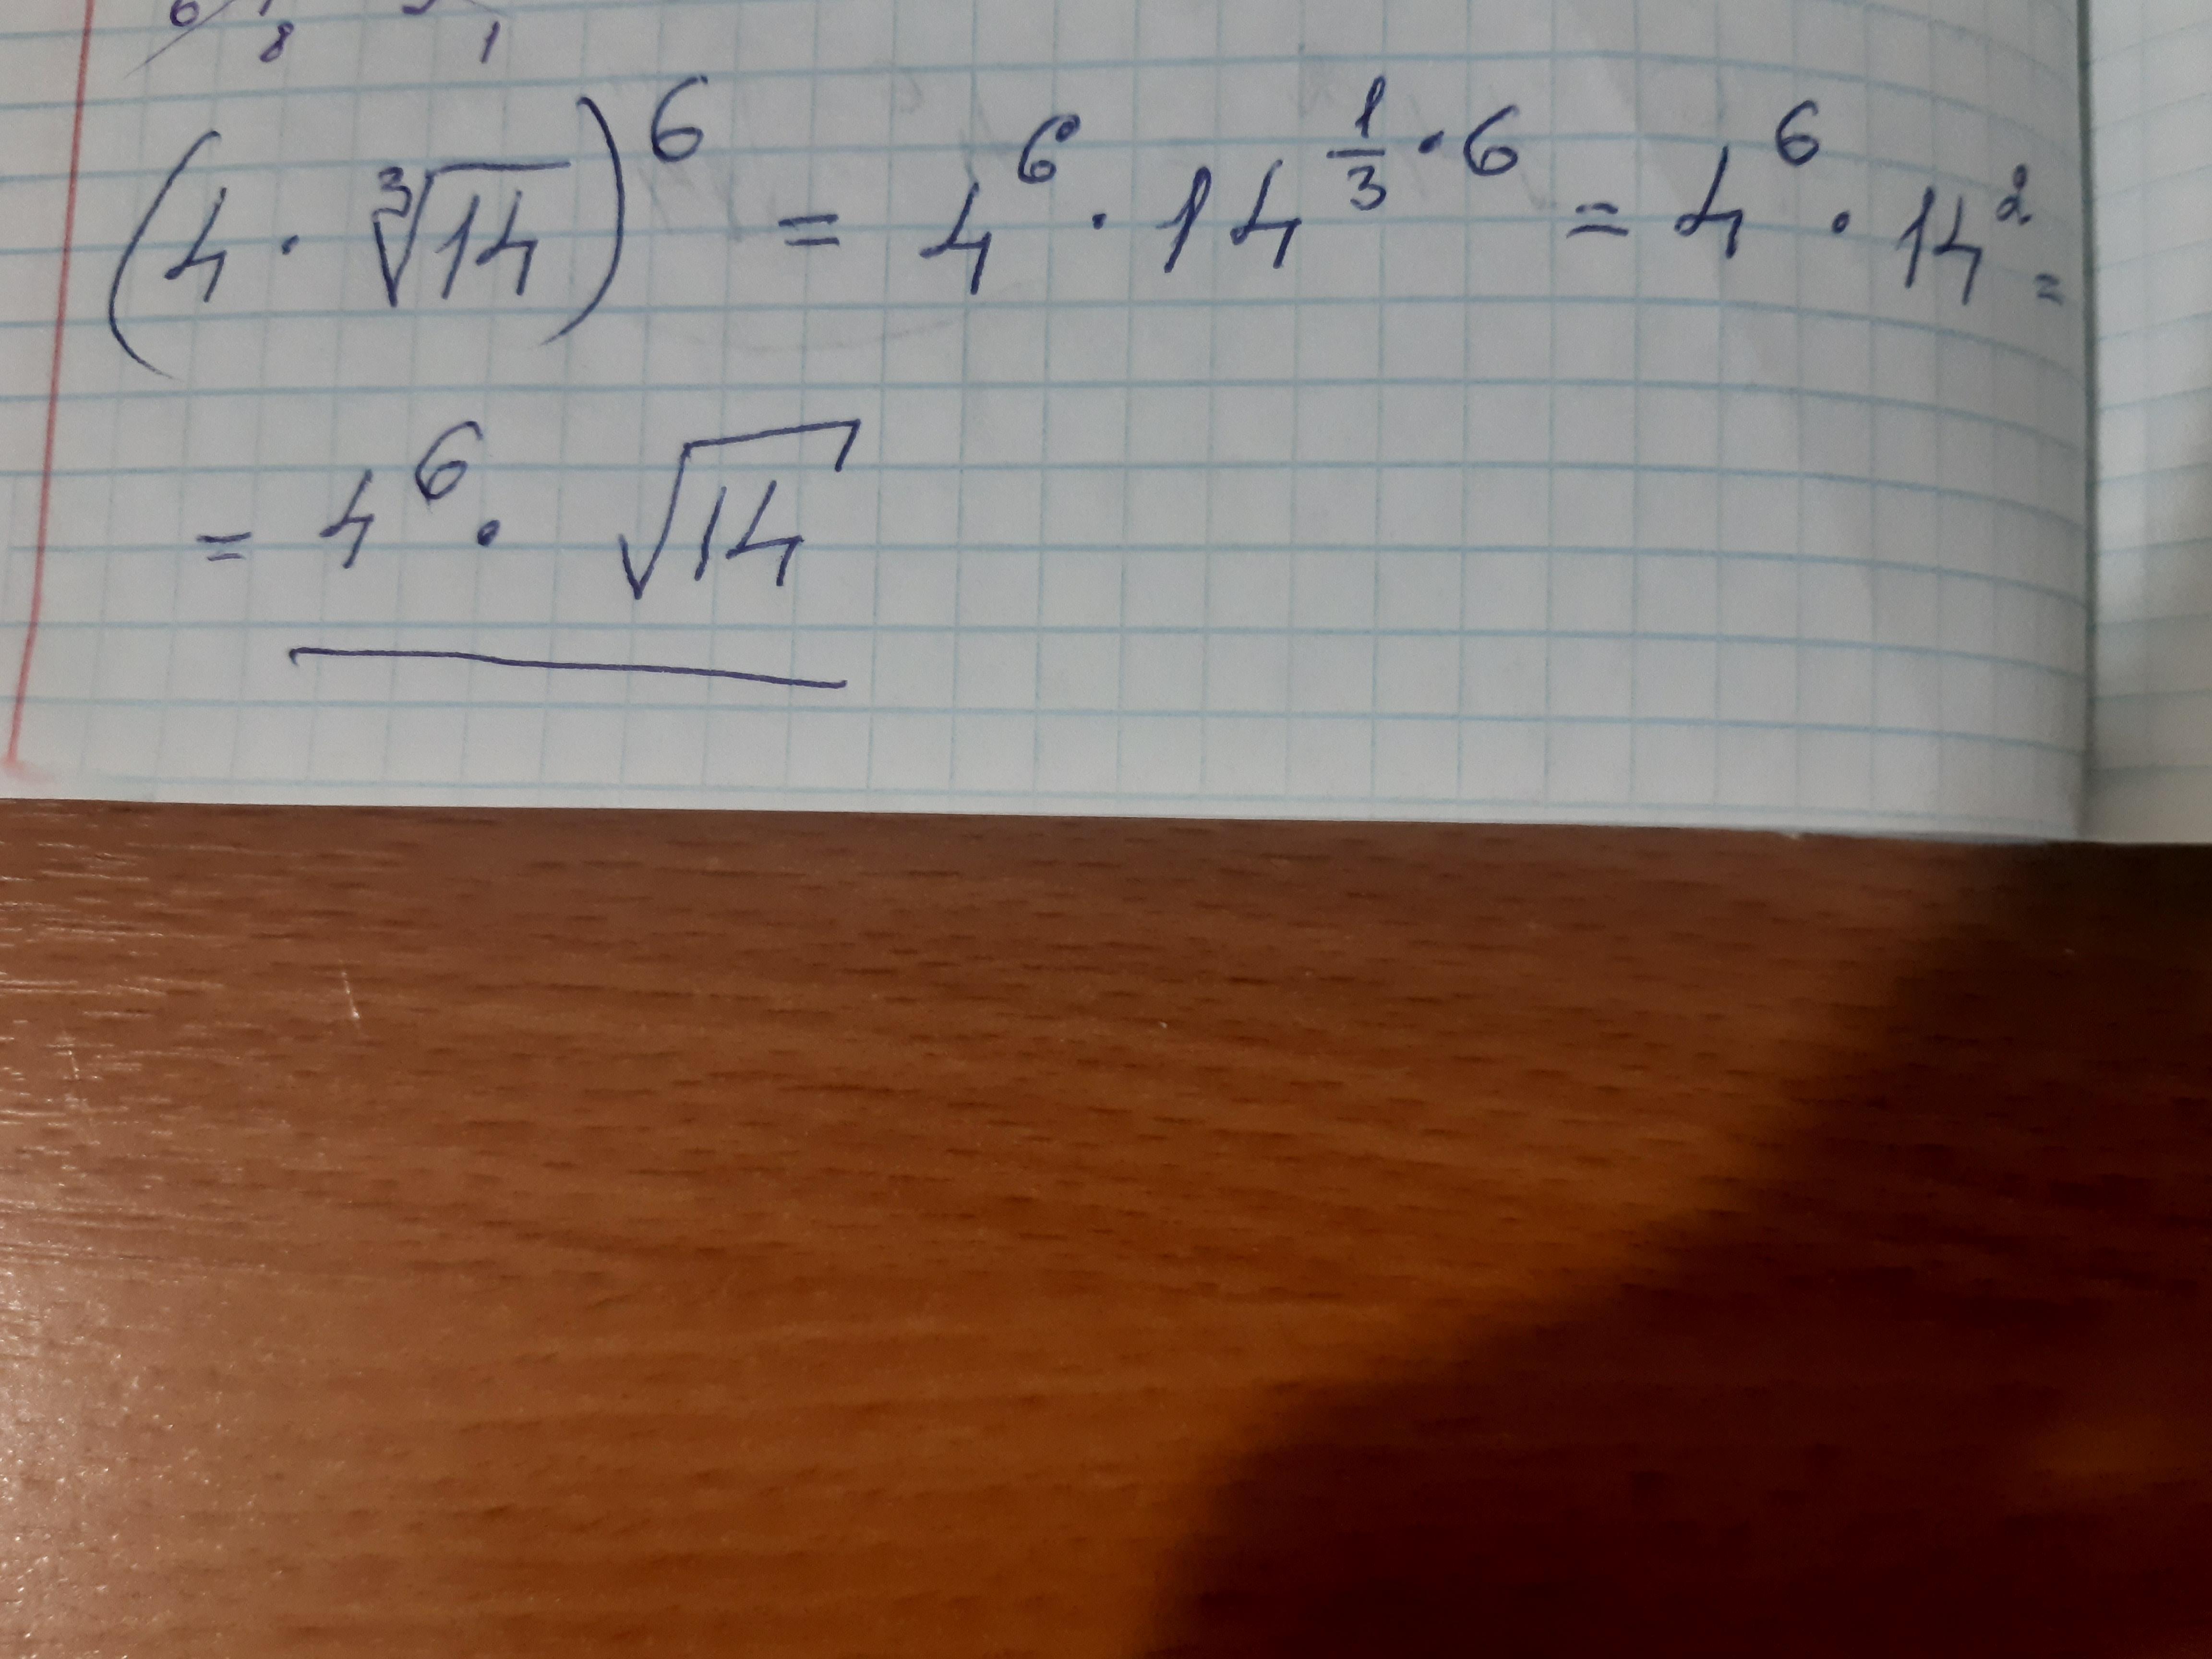 8 1
(4 · ∛14)⁶ = 4⁶ · 14^(1/3 · 6) = 4⁶ · 14² =
= 4⁶ · √14